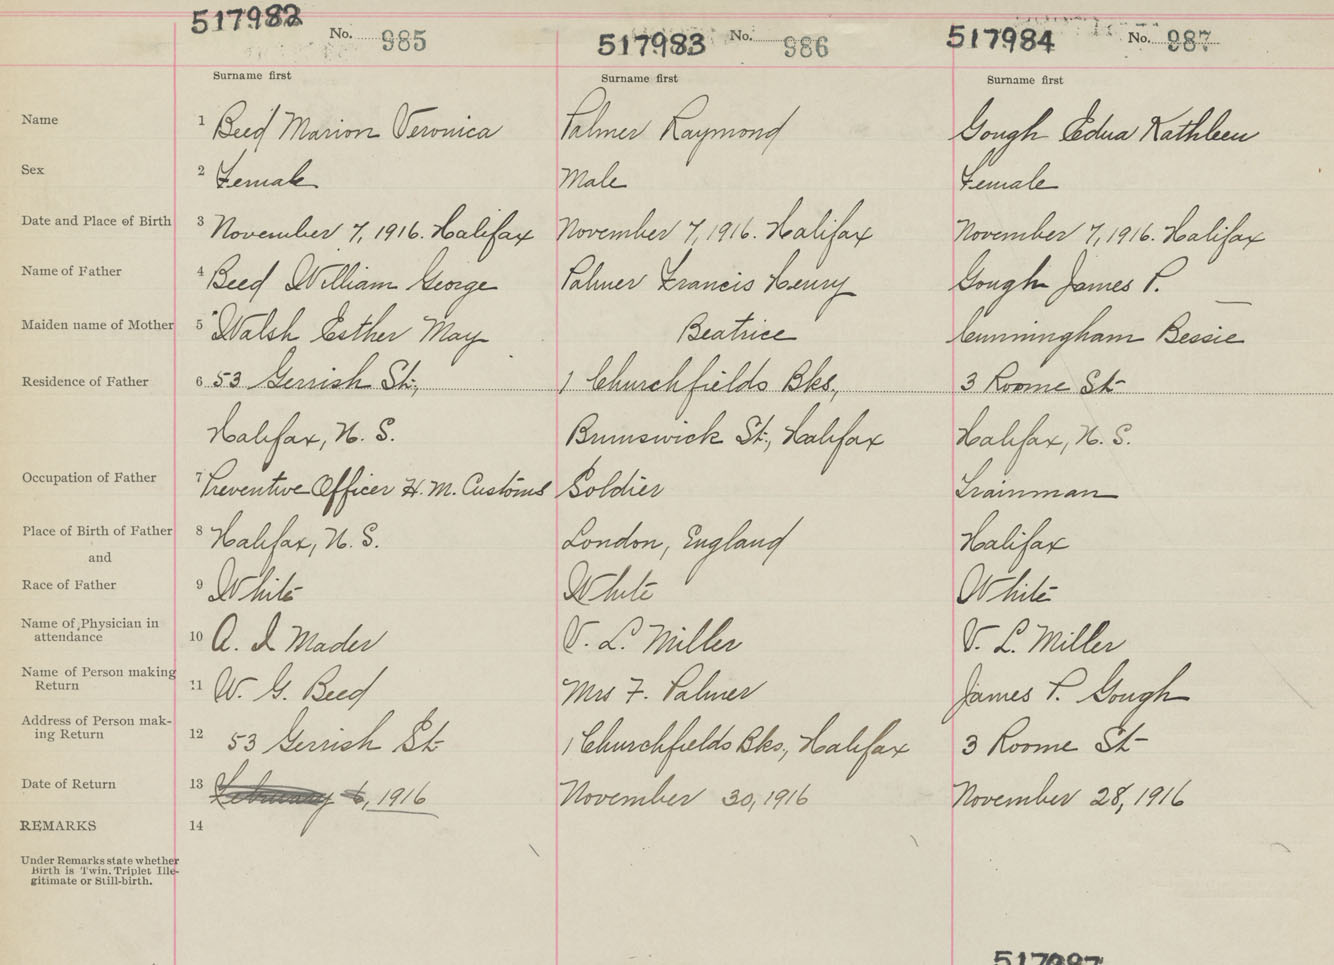 517982 No. 985 517983 No. 986 517984 No. 987
Surname first Surname first Surname first
Name 1 Beed Marion Veronica Palmer Raymond Gough Edna Kathleen
Sex 2 Female Male Female
Date and Place of Birth 3 November 7, 1916. Halifax November 7, 1916. Halifax November 7, 1916. Halifax
Name of Father 4 Beed William George Palmer Francis Henry Gough James P.
Maiden name of Mother 5 Walsh Esther May Beatrice Cunningham Bessie
Residence of Father 6 53 Gerrish St., 1 Churchfields Bks., 3 Roome St
Halifax, N. S. Brunswick St., Halifax Halifax, N. S.
Occupation of Father 7 Preventive Officer H. M. Customs Soldier Trainman
Place of Birth of Father 8 Halifax, N. S. London, England Halifax
and
Race of Father 9 White White White
Name of Physician in
attendance 10 A. I Mader V. L. Miller V. L. Miller
Name of Person making
Return 11 W. G. Beed Mrs F. Palmer James P. Gough
Address of Person mak-
ing Return 12 53 Gerrish St 1 Churchfields Bks., Halifax 3 Roome St
Date of Return 13 February 6, 1916 November 30, 1916 November 28, 1916
REMARKS 14
Under Remarks state whether
Birth is Twin. Triplet Ille-
gitimate or Still-birth.
517987